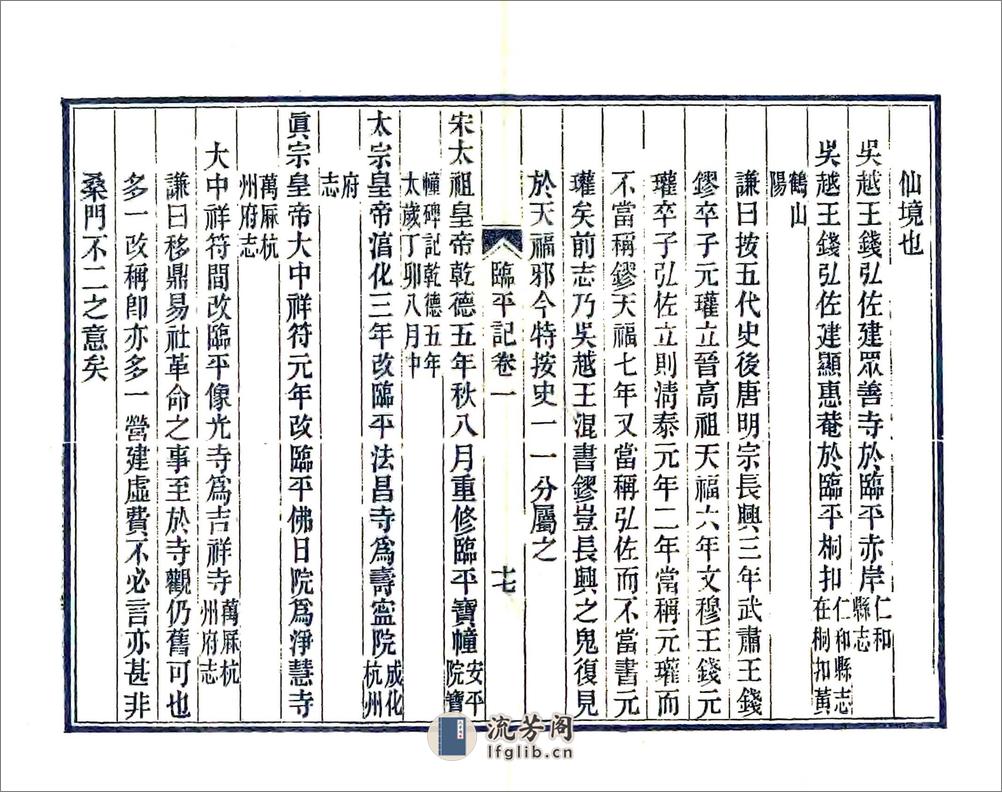 仙境也
吳越王錢弘佐建眾善寺於臨平赤岸仁和縣志
吳越王錢弘佐建顯惠菴於臨平桐扣仁和縣志在桐扣黃
鶴山陽
謙曰按五代史後唐明宗長興三年武肅王錢
鏐卒子元瓘立晉高祖天福六年文穆王錢元
瓘卒子弘佐立則淸泰元年二年當稱元瓘而
不當稱鏐天福七年又當稱弘佐而不當書元
瓘矣前志乃吳越王混書鏐豈長興之鬼復見
於天福邪今特按史一一分屬之
臨平記卷一
十七
宋太祖皇帝乾德五年秋八月重修臨平寶幢安平院寶
幢碑記乾德五年太歲丁卯八月中
太宗皇帝淯化三年改臨平法昌寺爲壽寍院成化杭州
府志
眞宗皇帝大中祥符元年改臨平佛日院爲淨慧寺
萬厤杭州府志
大中祥符間改臨平像光寺爲吉祥寺萬厤杭州府志
謙曰移鼎易社革命之事至於寺觀仍舊可也
多一改稱卽亦多一營建虛費不必言亦甚非
桑門不二之意矣
流芳阁
lfglib.cn